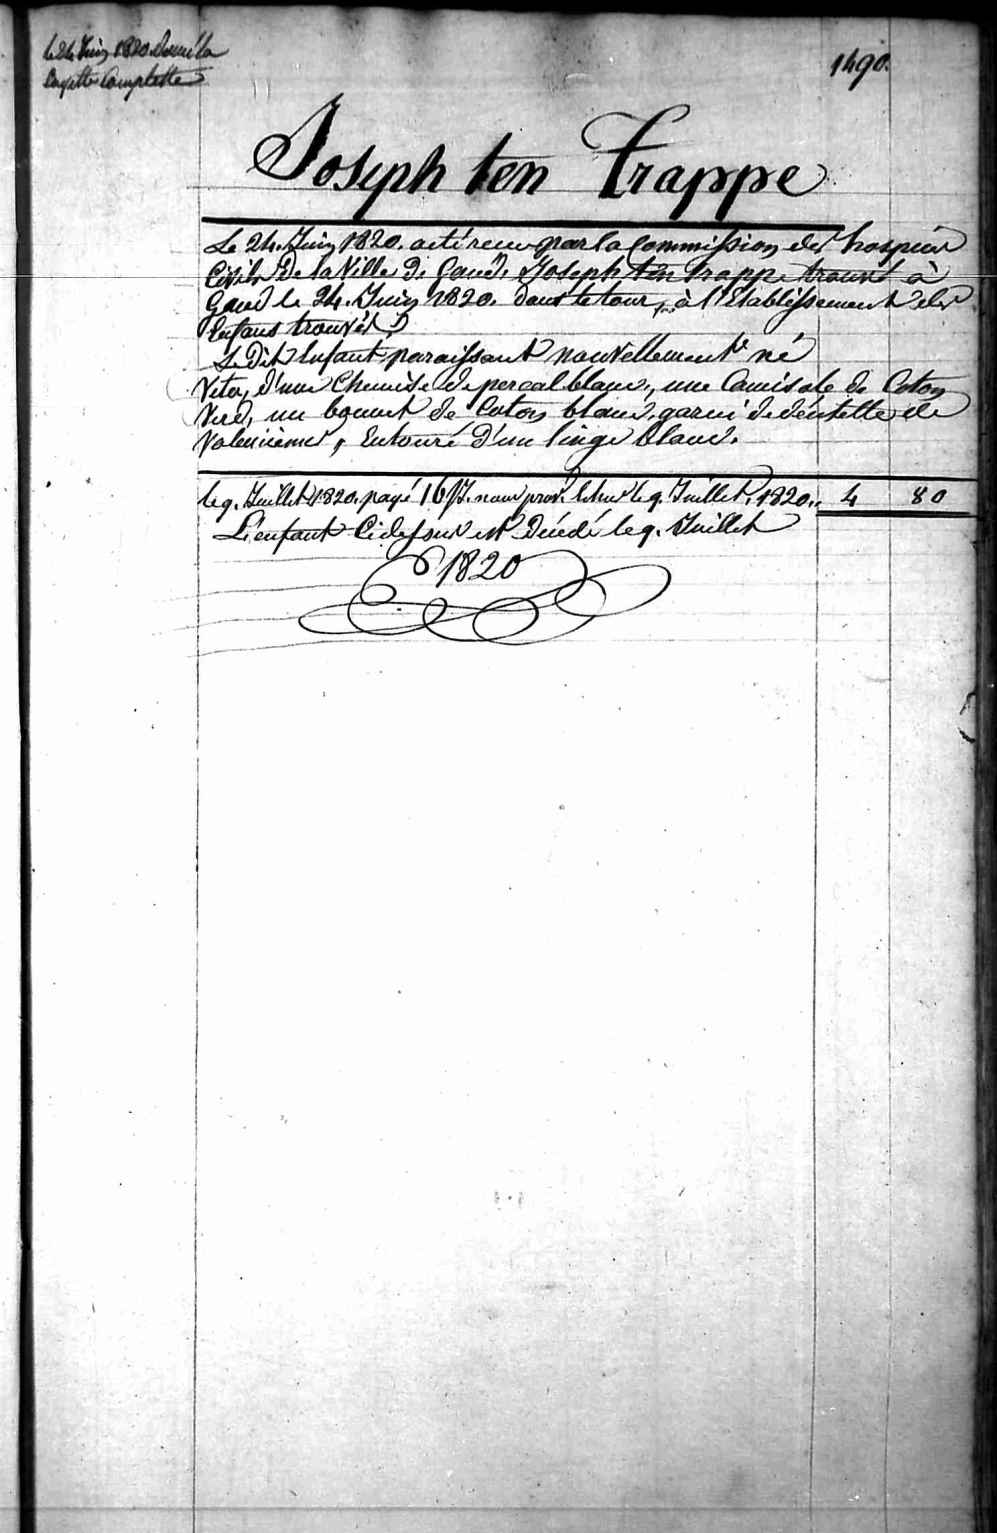 le 24 Juin 1820 Donné la
Layette Complette
1490.
Joseph ten Trappe
Le 24. Juin 1820. a été recu par la Commission des hospices
Civils De la Ville De Gand, Joseph ten trappe trouvé à
Gand le 24. Juin 1820. dans le tour, à l'Etablissement des
Enfans trouvés
Le Dit Enfant paraissant nouvellement né
Vetu, d'une Chemise de percal blanc, une Camisole de Coton
Verd, un bonnet de Coton blanc, garni de dentelle de
Valencienne, Entouré d'un linge blanc.
le 9. Juillet 1820. payé 16 J. nour prov. échu le 9. Juillet. 1820. 4 80
L'enfant Cidessus est Décédé le 9. Juillet
1820